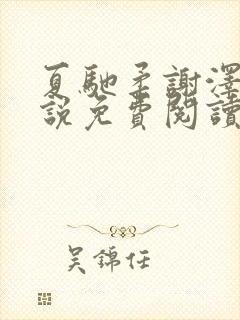 夏馳柔謝澤
說免費閱讀
吳錦任